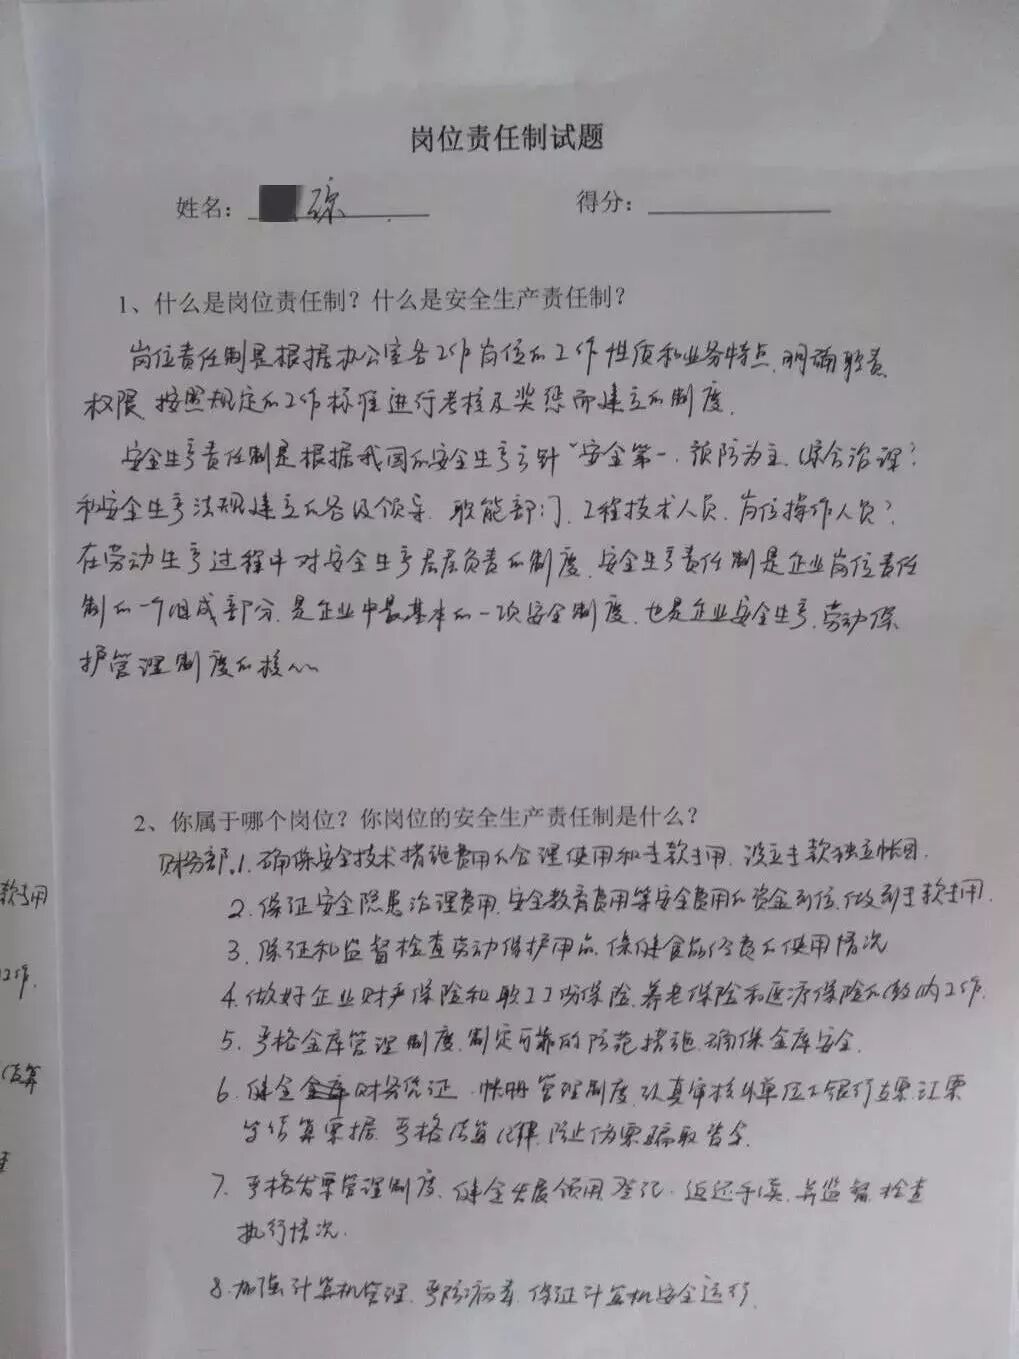 岗位责任制试题
姓名：琼
得分：
1、什么是岗位责任制？什么是安全生产责任制？
岗位责任制是根据办公室各工作岗位的工作性质和业务特点，明确职责、
权限，按照规定的工作标准进行考核及奖惩而建立的制度。
安全生产责任制是根据我国的安全生产方针“安全第一，预防为主，综合治理”
和安全生产法规建立的各级领导、职能部门、工程技术人员、岗位操作人员
在劳动生产过程中对安全生产层层负责的制度。安全生产责任制是企业岗位责任
制的一个组成部分，是企业中最基本的一项安全制度，也是企业安全生产、劳动保
护管理制度的核心
2、你属于哪个岗位？你岗位的安全生产责任制是什么？
财务部。1. 确保安全技术措施费用的合理使用和专款专用，设立专款独立帐
2. 保证安全隐患治理费用、安全教育费用等安全费用的资金到位，做到专款专用。
3. 保证和监督检查劳动保护用品、保健食品经费的使用情况
4. 做好企业财产保险和职工工伤保险、养老保险和医疗保险的缴纳工作。
5. 严格金库管理制度，制定可靠的防范措施，确保金库安全。
6. 健全财务凭证、帐册管理制度，认真审核外单位银行支票、汇票
等结算票据，严格结算纪律，防止伪票骗取资金。
7. 严格发票管理制度，健全发展领用登记、返还手续，并监督检查
执行情况。
8. 加强计算机管理，严防病毒，保证计算机安全运行。
款专用
工作。
结算